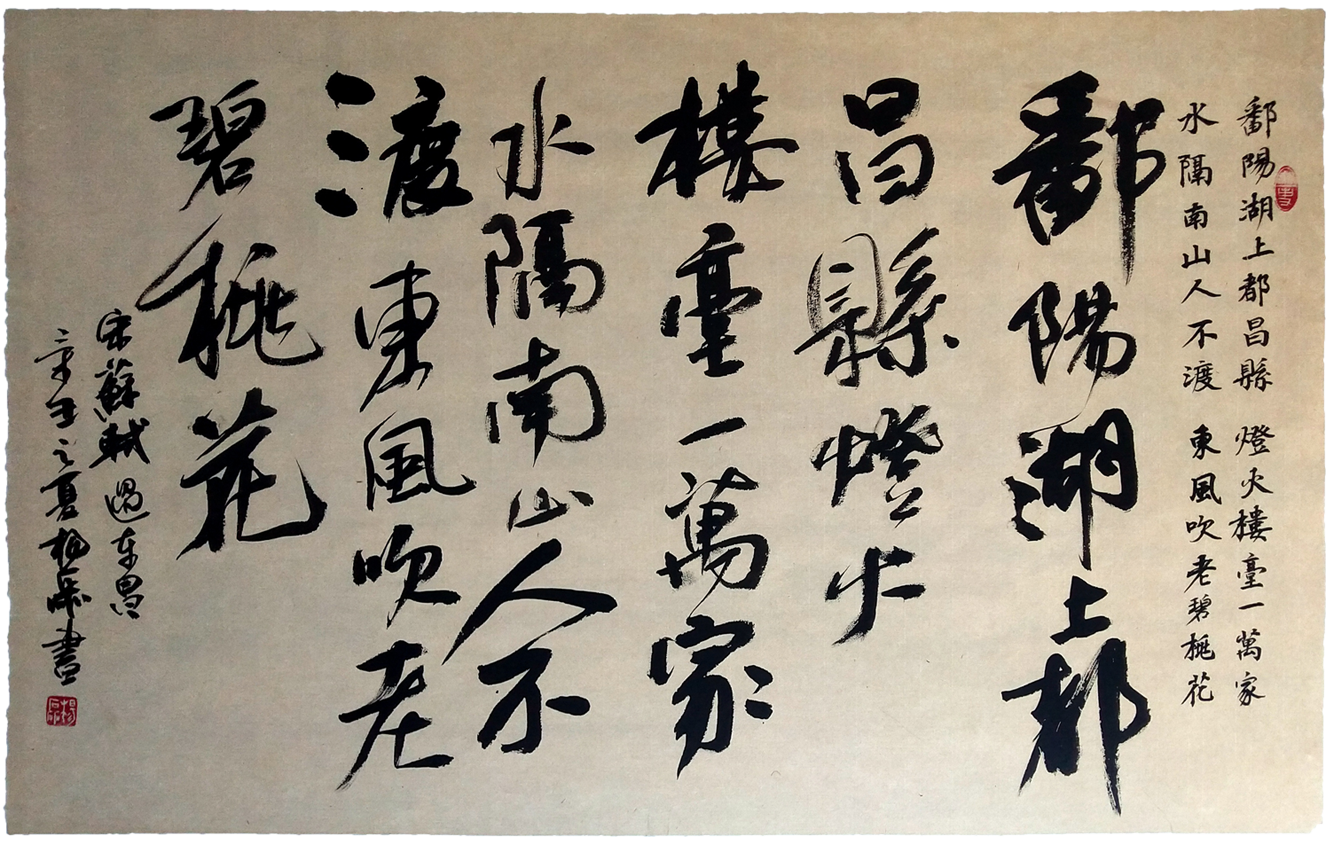 鄱陽湖上都昌縣 燈火樓臺一萬家
水隔南山人不渡 東風吹老碧桃花
鄱陽湖上都
昌縣燈火
樓臺一萬家
水隔南山人不
渡東風吹老
碧桃花
宋蘇軾過昌
之夏楊書